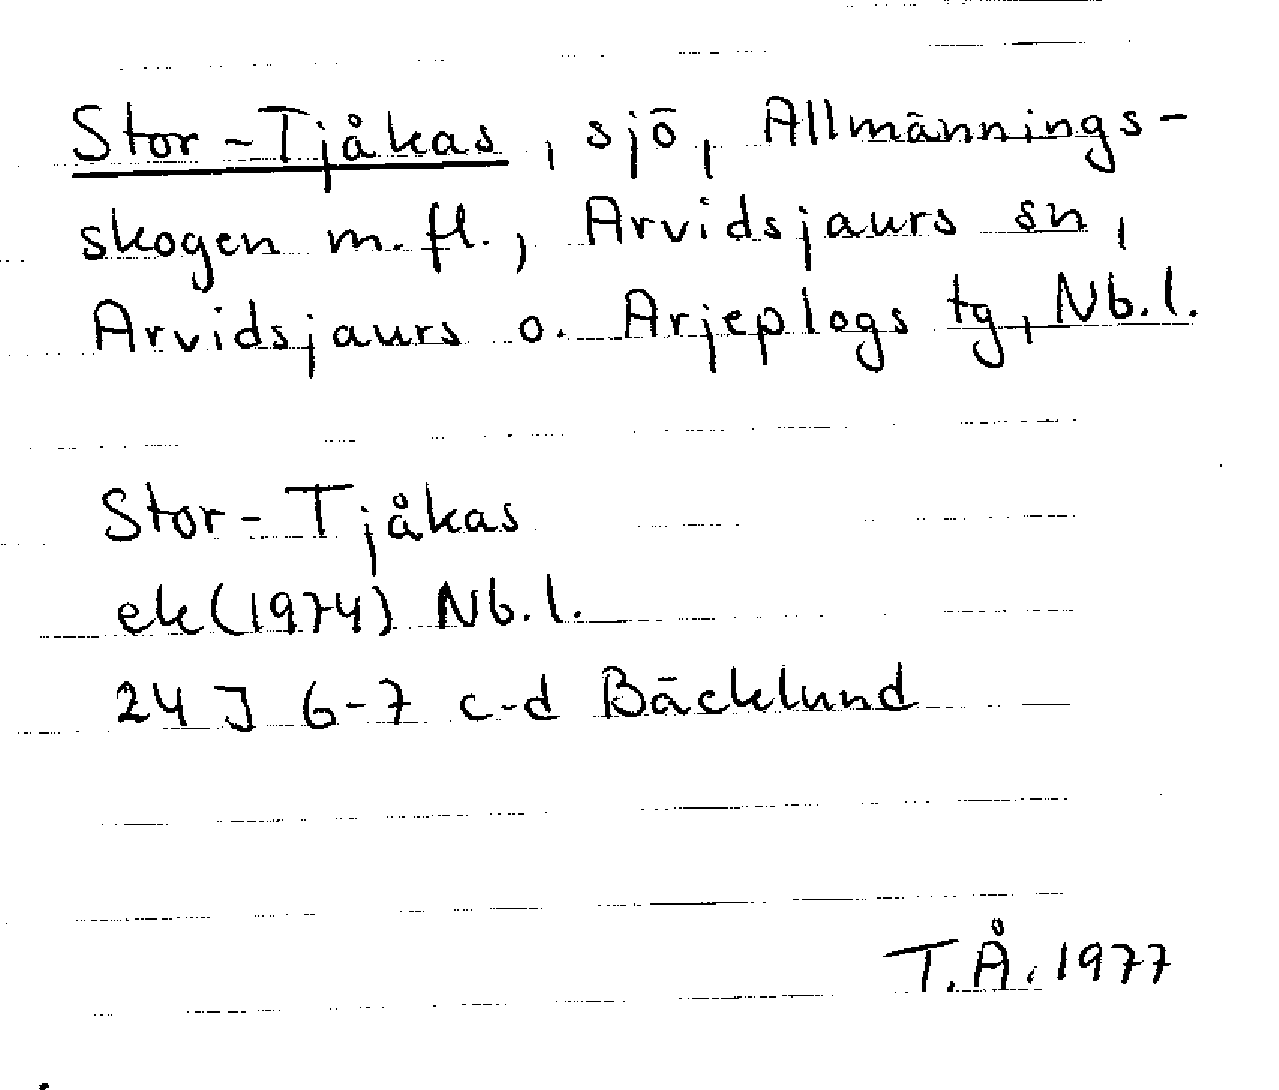 Stor-Tjåkas, sjö, Allmännings-
skogen m.fl., Arvidsjaurs sn,
Arvidsjaurs o. Arjeplogs tg, Nb.l.
Stor-Tjåkas
ek(1974) Nb.l.
24 J 6-7 c-d Bäcklund
T.Å. 1977